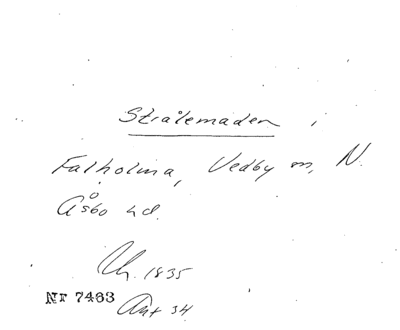 Strålemaden
Falholma, Vedby sn, N.
Åsbo hd.
Uh. 1835
Nr 7483
Ant 34